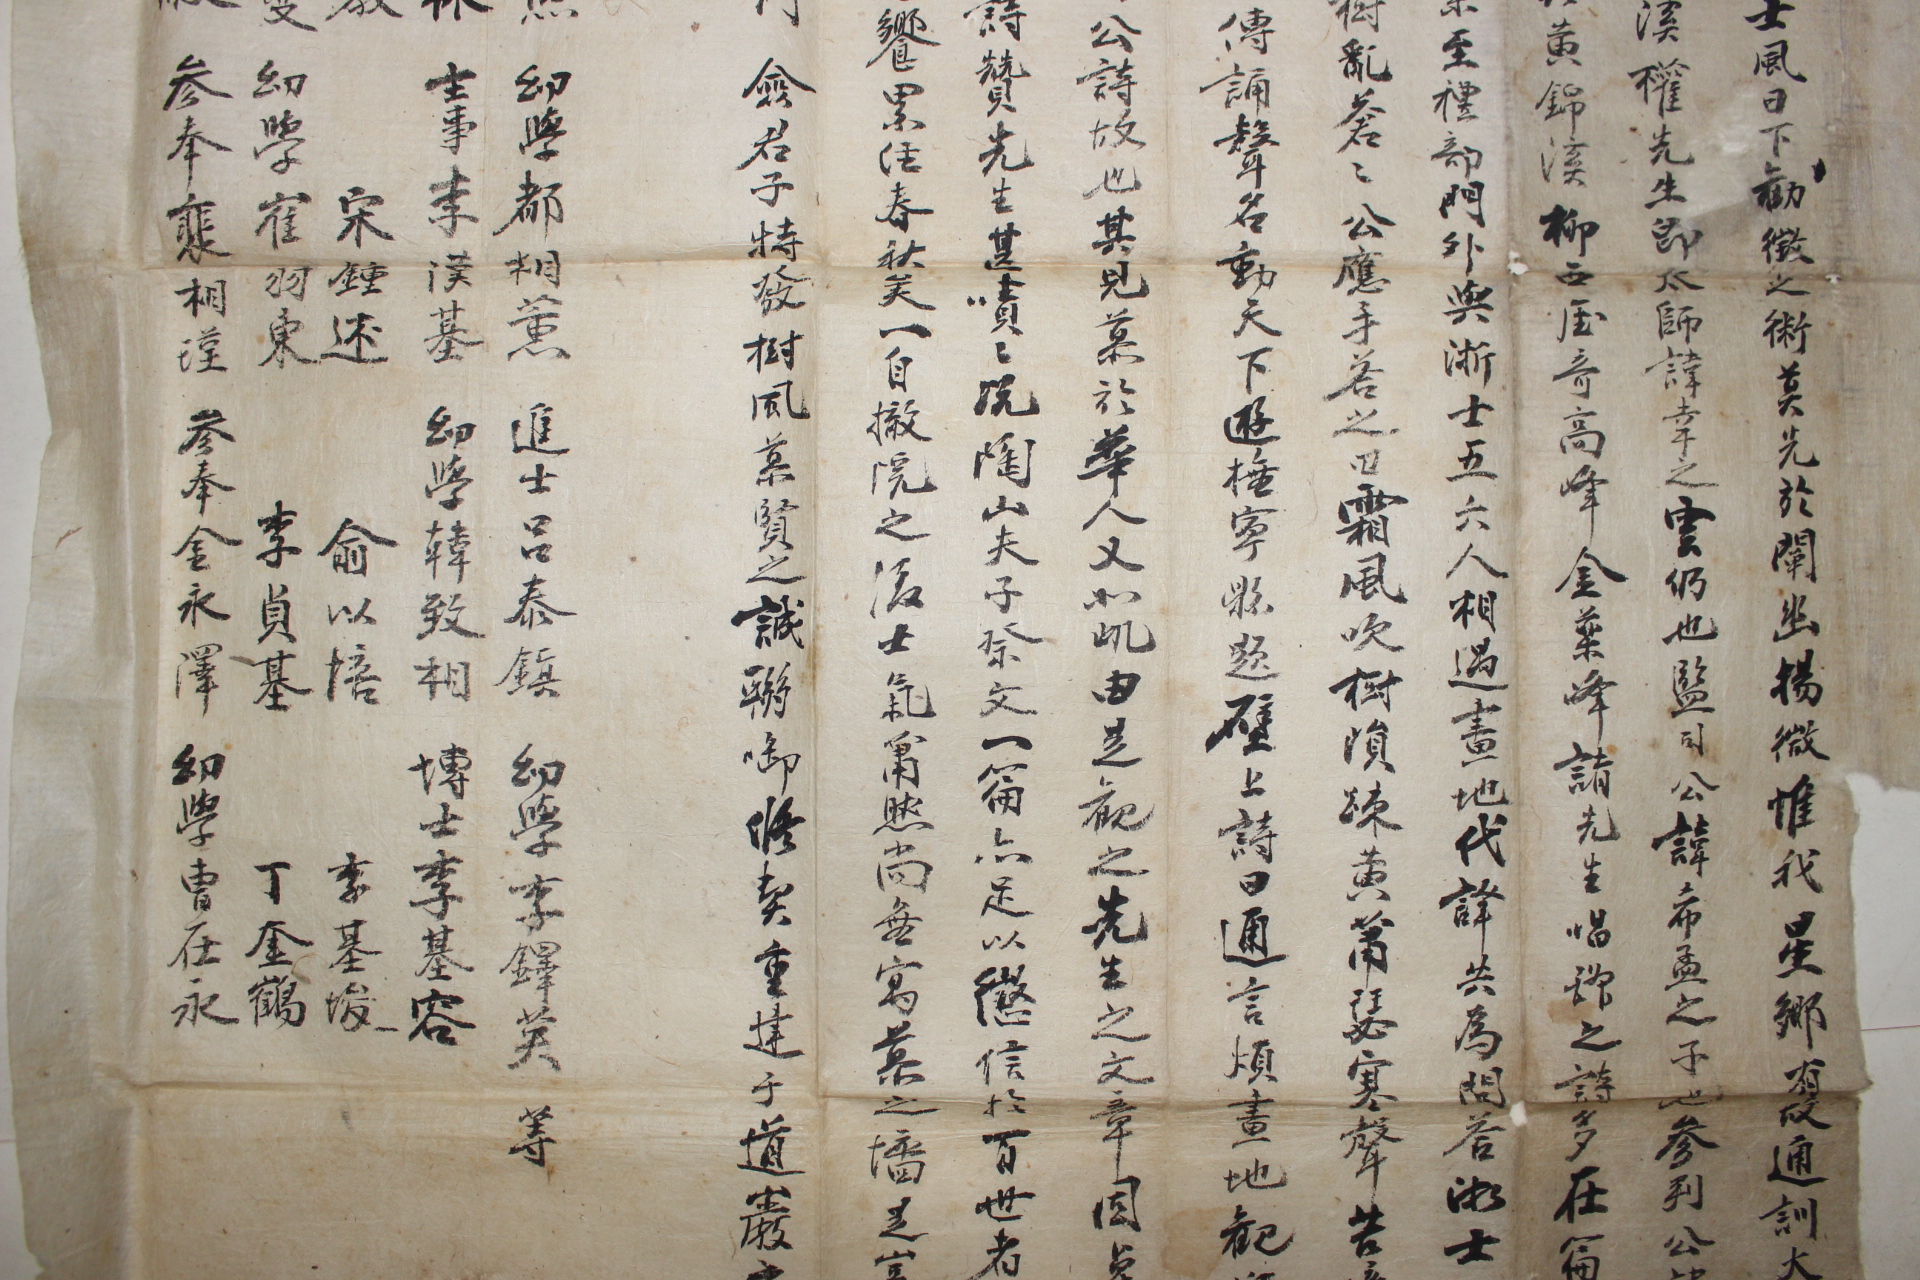 士風曰下勸徵之術莫先於闡幽揚微惟我星鄉有故通訓大
溪權先生卽太師諱幸之雲仍也監司公諱希孟之子也參判公
黃錦溪柳西厓奇高峰金藥峰諸先生唱酬之詩多在篇
至禮部門外與浙士五六人相遇畫地代譯共爲問答浙士
樹亂蒼〻公應手答之曰霜風吹樹隕疎黃蕭瑟寒聲苦
傳誦聲名動天下遊撫寧縣題壁上詩曰通言煩畫地觀
公詩故也其見慕於華人又如此由是觀之先生之文章固
詩贊先生甚嘖〻況陶山夫子祭文一篇亦足以徵信於百世者
饗累浯春秋矣一自撤院之後士氣蕭然尚無寓慕之墻是豈
僉君子特發樹風慕賢之誠聯御修契重建于道巖
幼學都相薰 進士呂泰鎭 幼學李鐸英 等
士事李漢基 幼學韓致相 博士李基容
宋鍾述 俞以培 李基埈
幼學崔羽東 李貞基 丁奎鶴
參奉裵相瑾 參奉金永澤 幼學曺在永